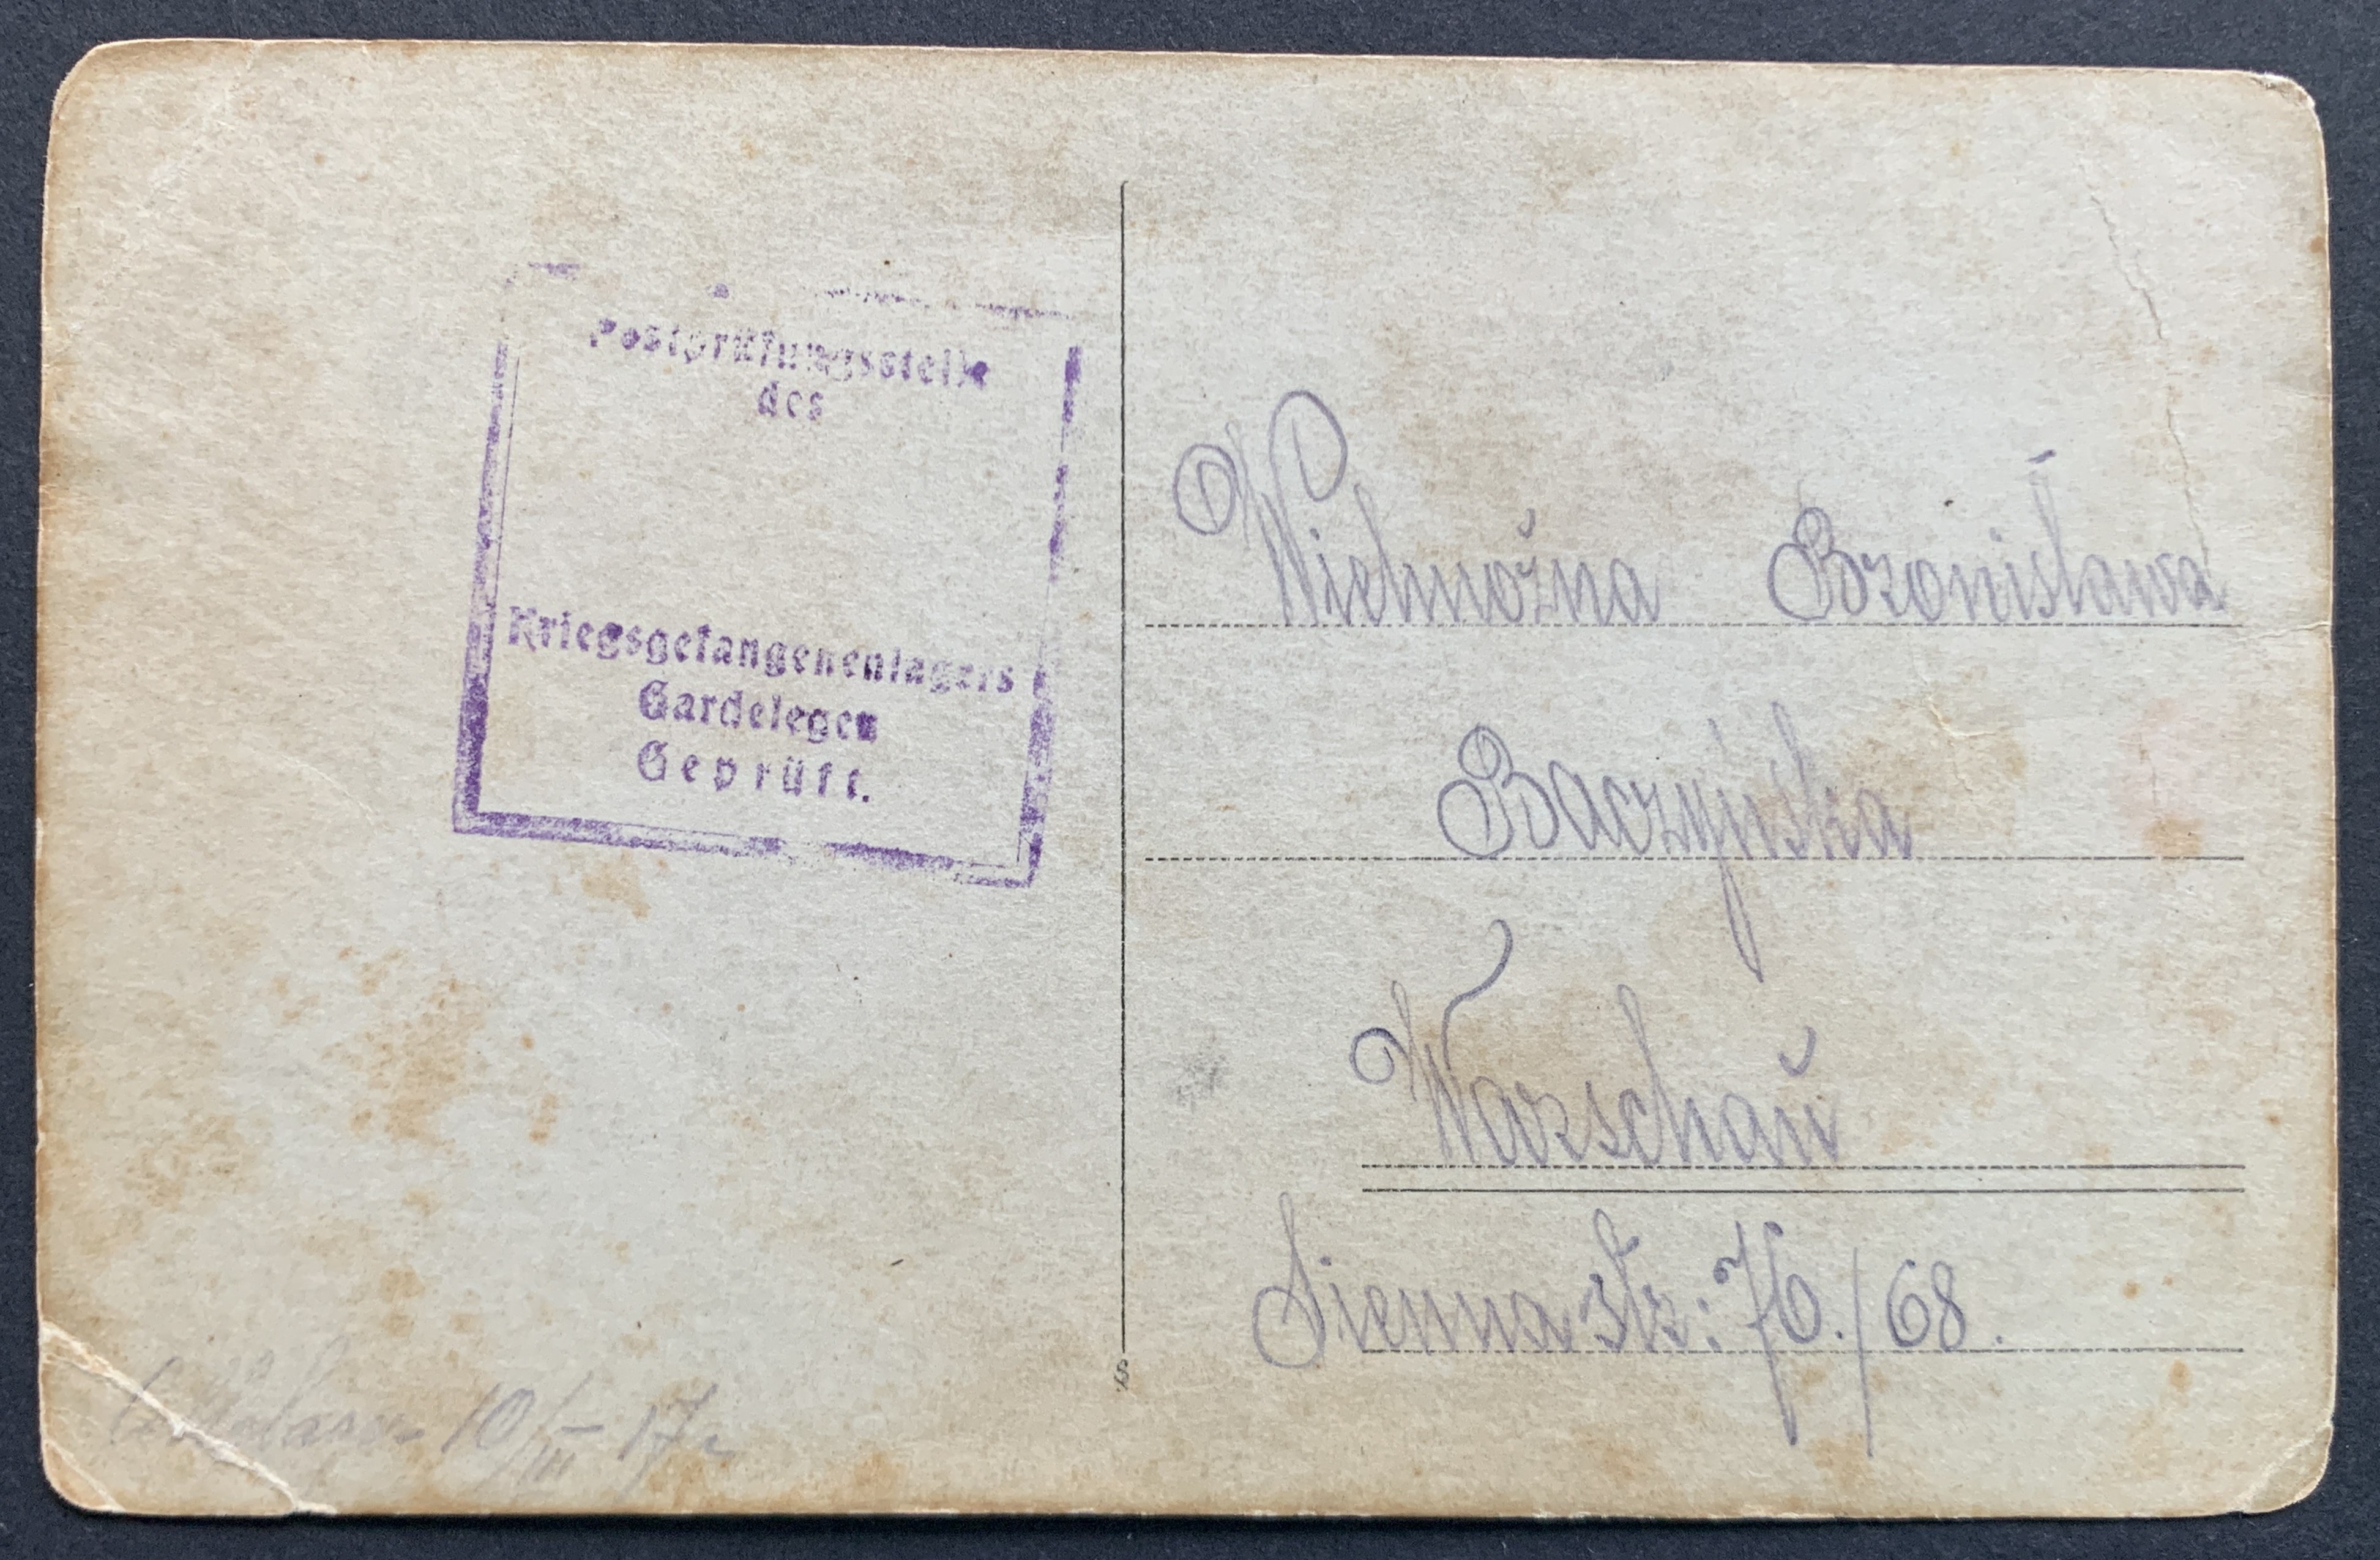 Postprüfungsstelle
des
Kriegsgefangenenlagers
Gardelegen
Geprüft.
Wielmożna Bronisława
Baczyńska
Warschaŭ
Sienna Str: 76./68.
10/III 17 r